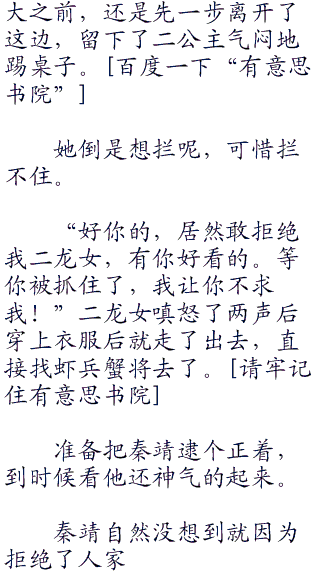 大之前，还是先一步离开了
这边，留下了二公主气闷地
踢桌子。[百度一下“有意思
书院”]
她倒是想拦呢，可惜拦
不住。
“好你的，居然敢拒绝
我二龙女，有你好看的。等
你被抓住了，我让你不求
我！”二龙女嗔怒了两声后
穿上衣服后就走了出去，直
接找虾兵蟹将去了。[请牢记
住有意思书院]
准备把秦靖逮个正着，
到时候看他还神气的起来。
秦靖自然没想到就因为
拒绝了人家